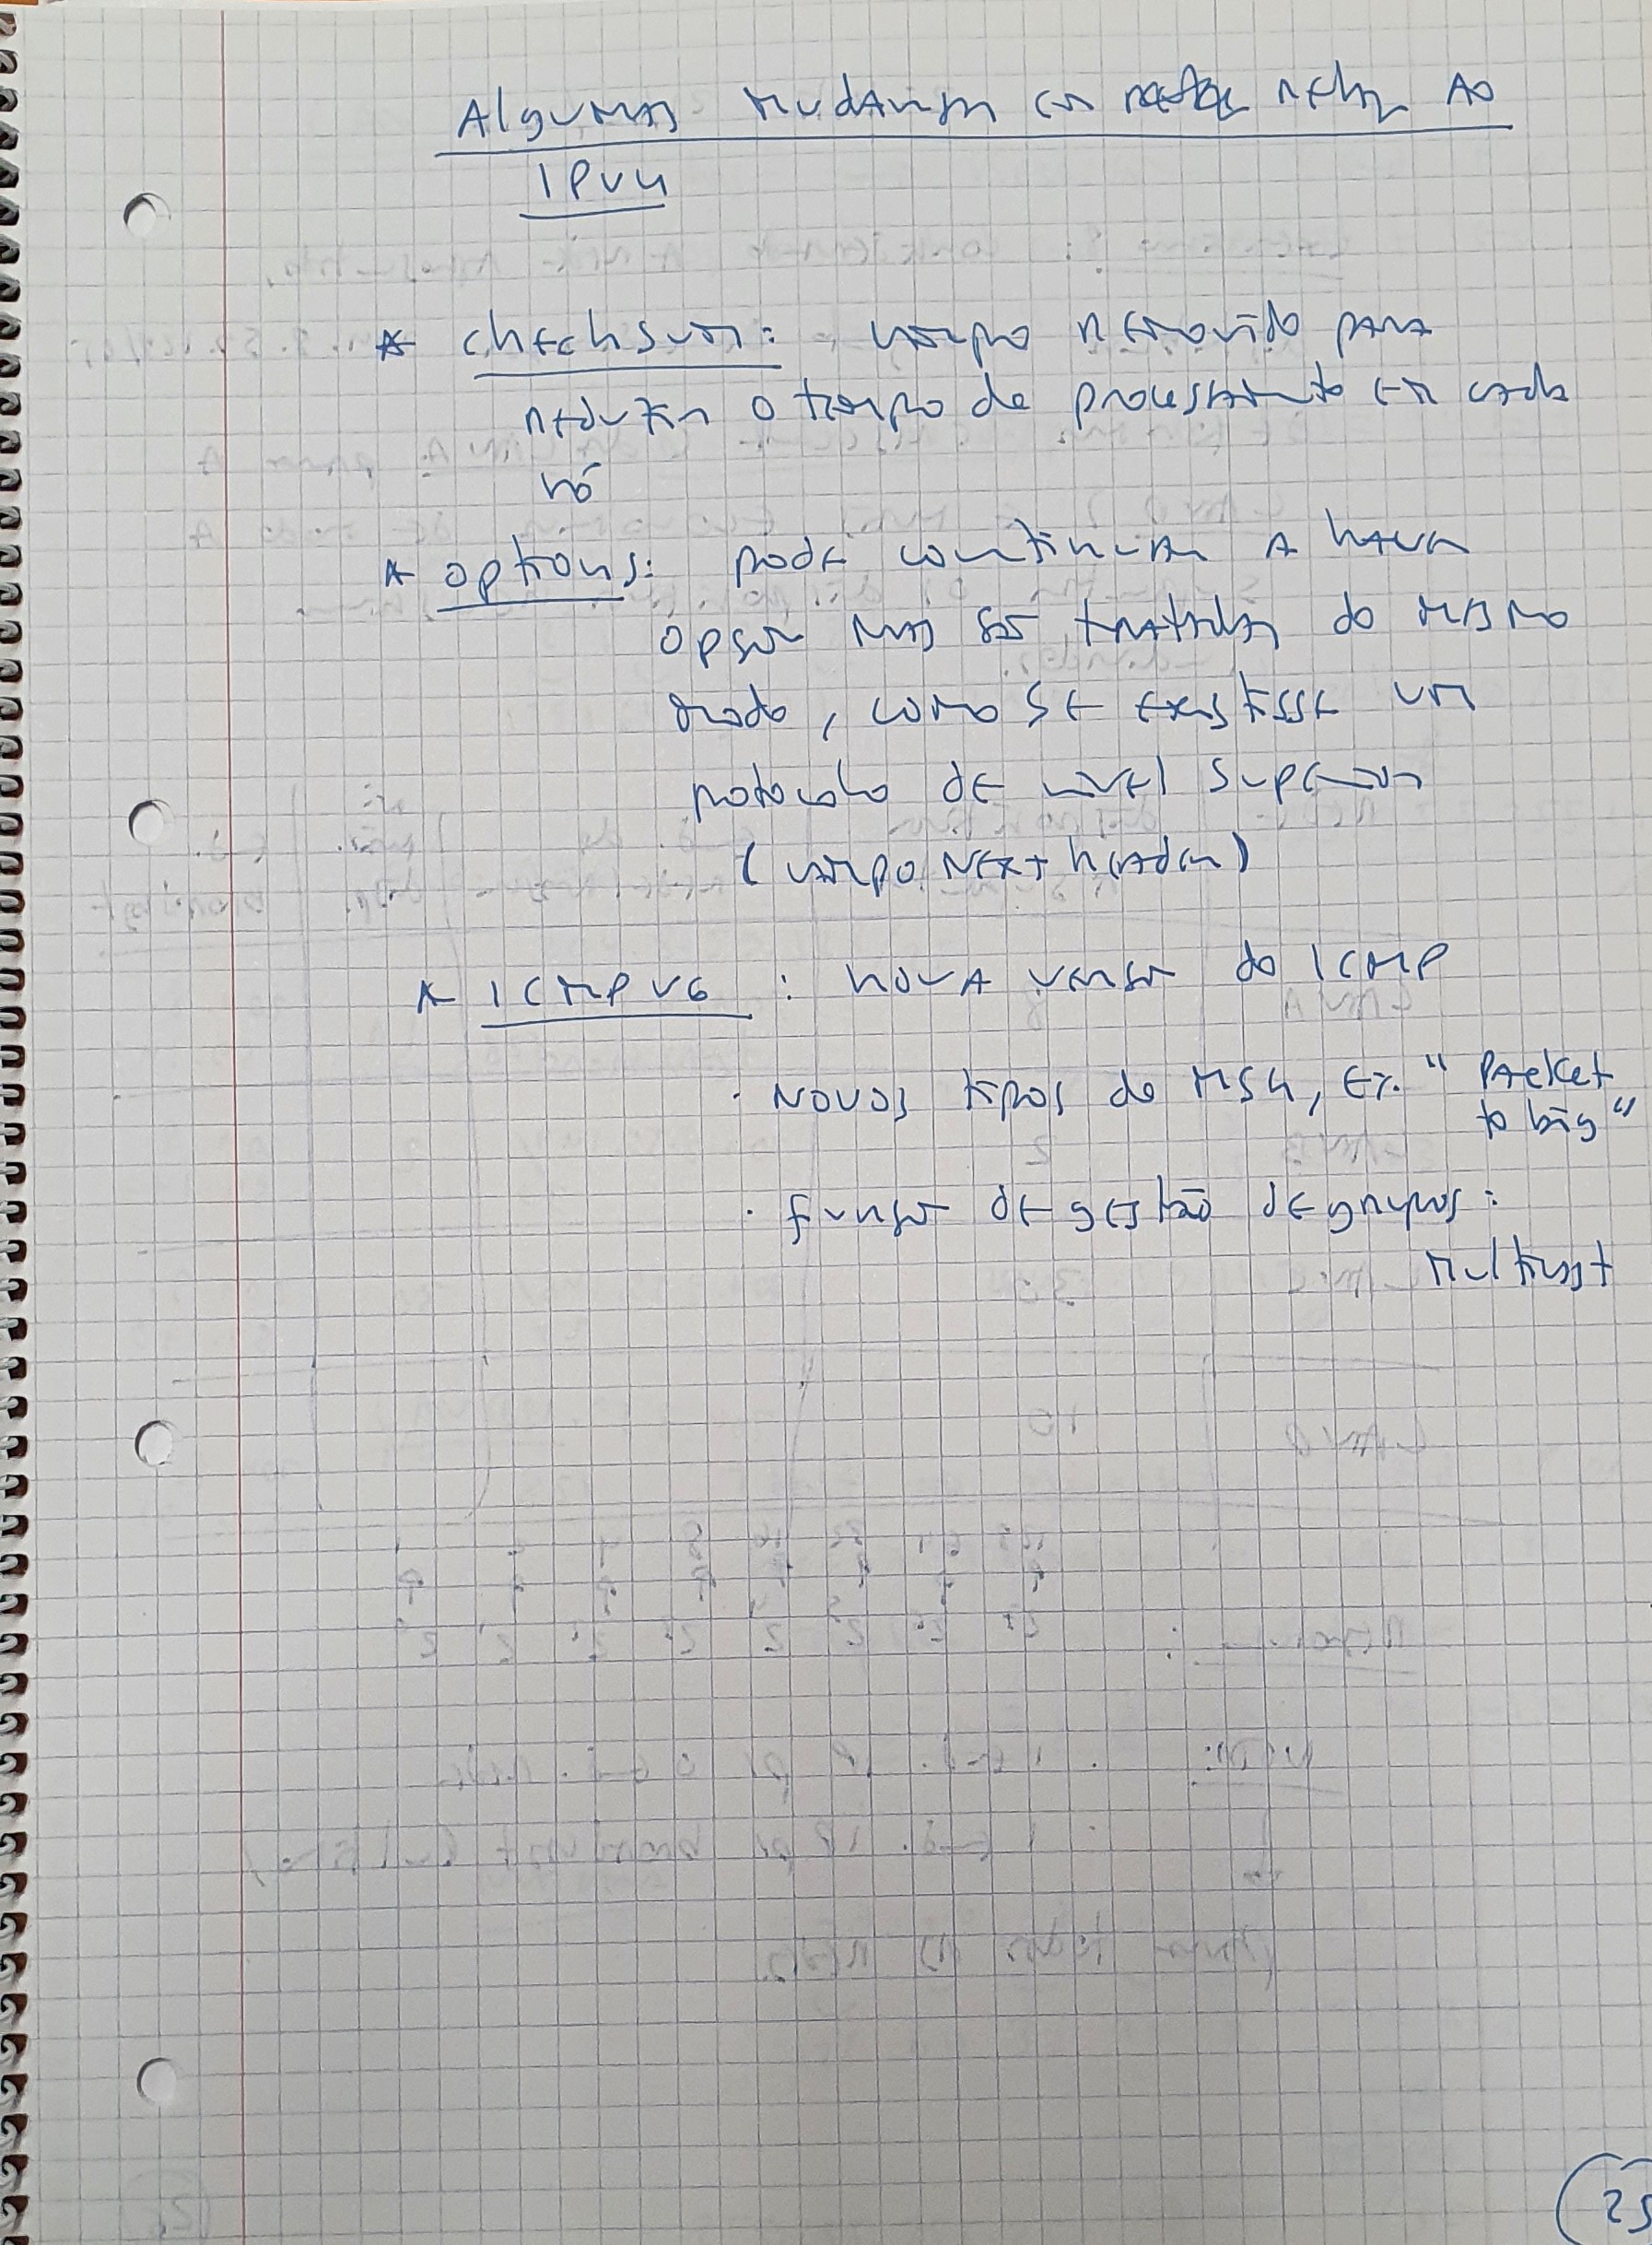 Algumas mudanças em relação ao
IPv4
* checksum: campo removido para
reduzir o tempo de processamento em cada
nó
* options: pode continuar a haver
opções mas são tratadas do mesmo
modo, como se existisse um
protocolo de nível superior
(campo Next header)
* ICMPv6 : nova versão do ICMP
· Novos tipos de MSG, Ex. "Packet
to big"
· funções de gestão de grupos:
Multicast
25